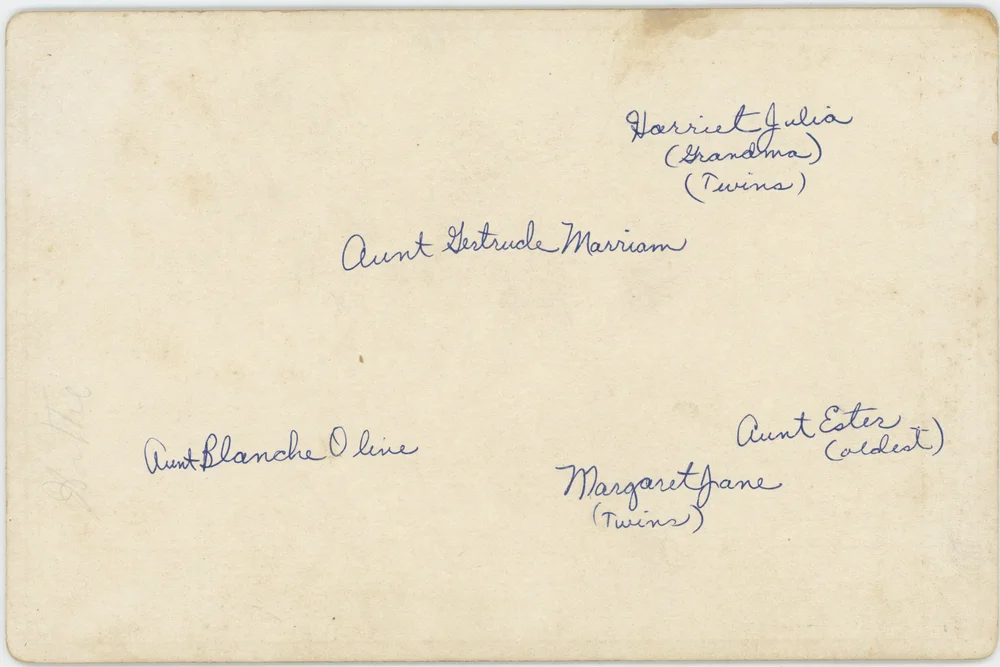 Harriet Julia
(Grandma)
(Twins)
Aunt Gertrude Marriam
Aunt Ester
(oldest)
Aunt Blanche Oline
Margaret Jane
(Twins)